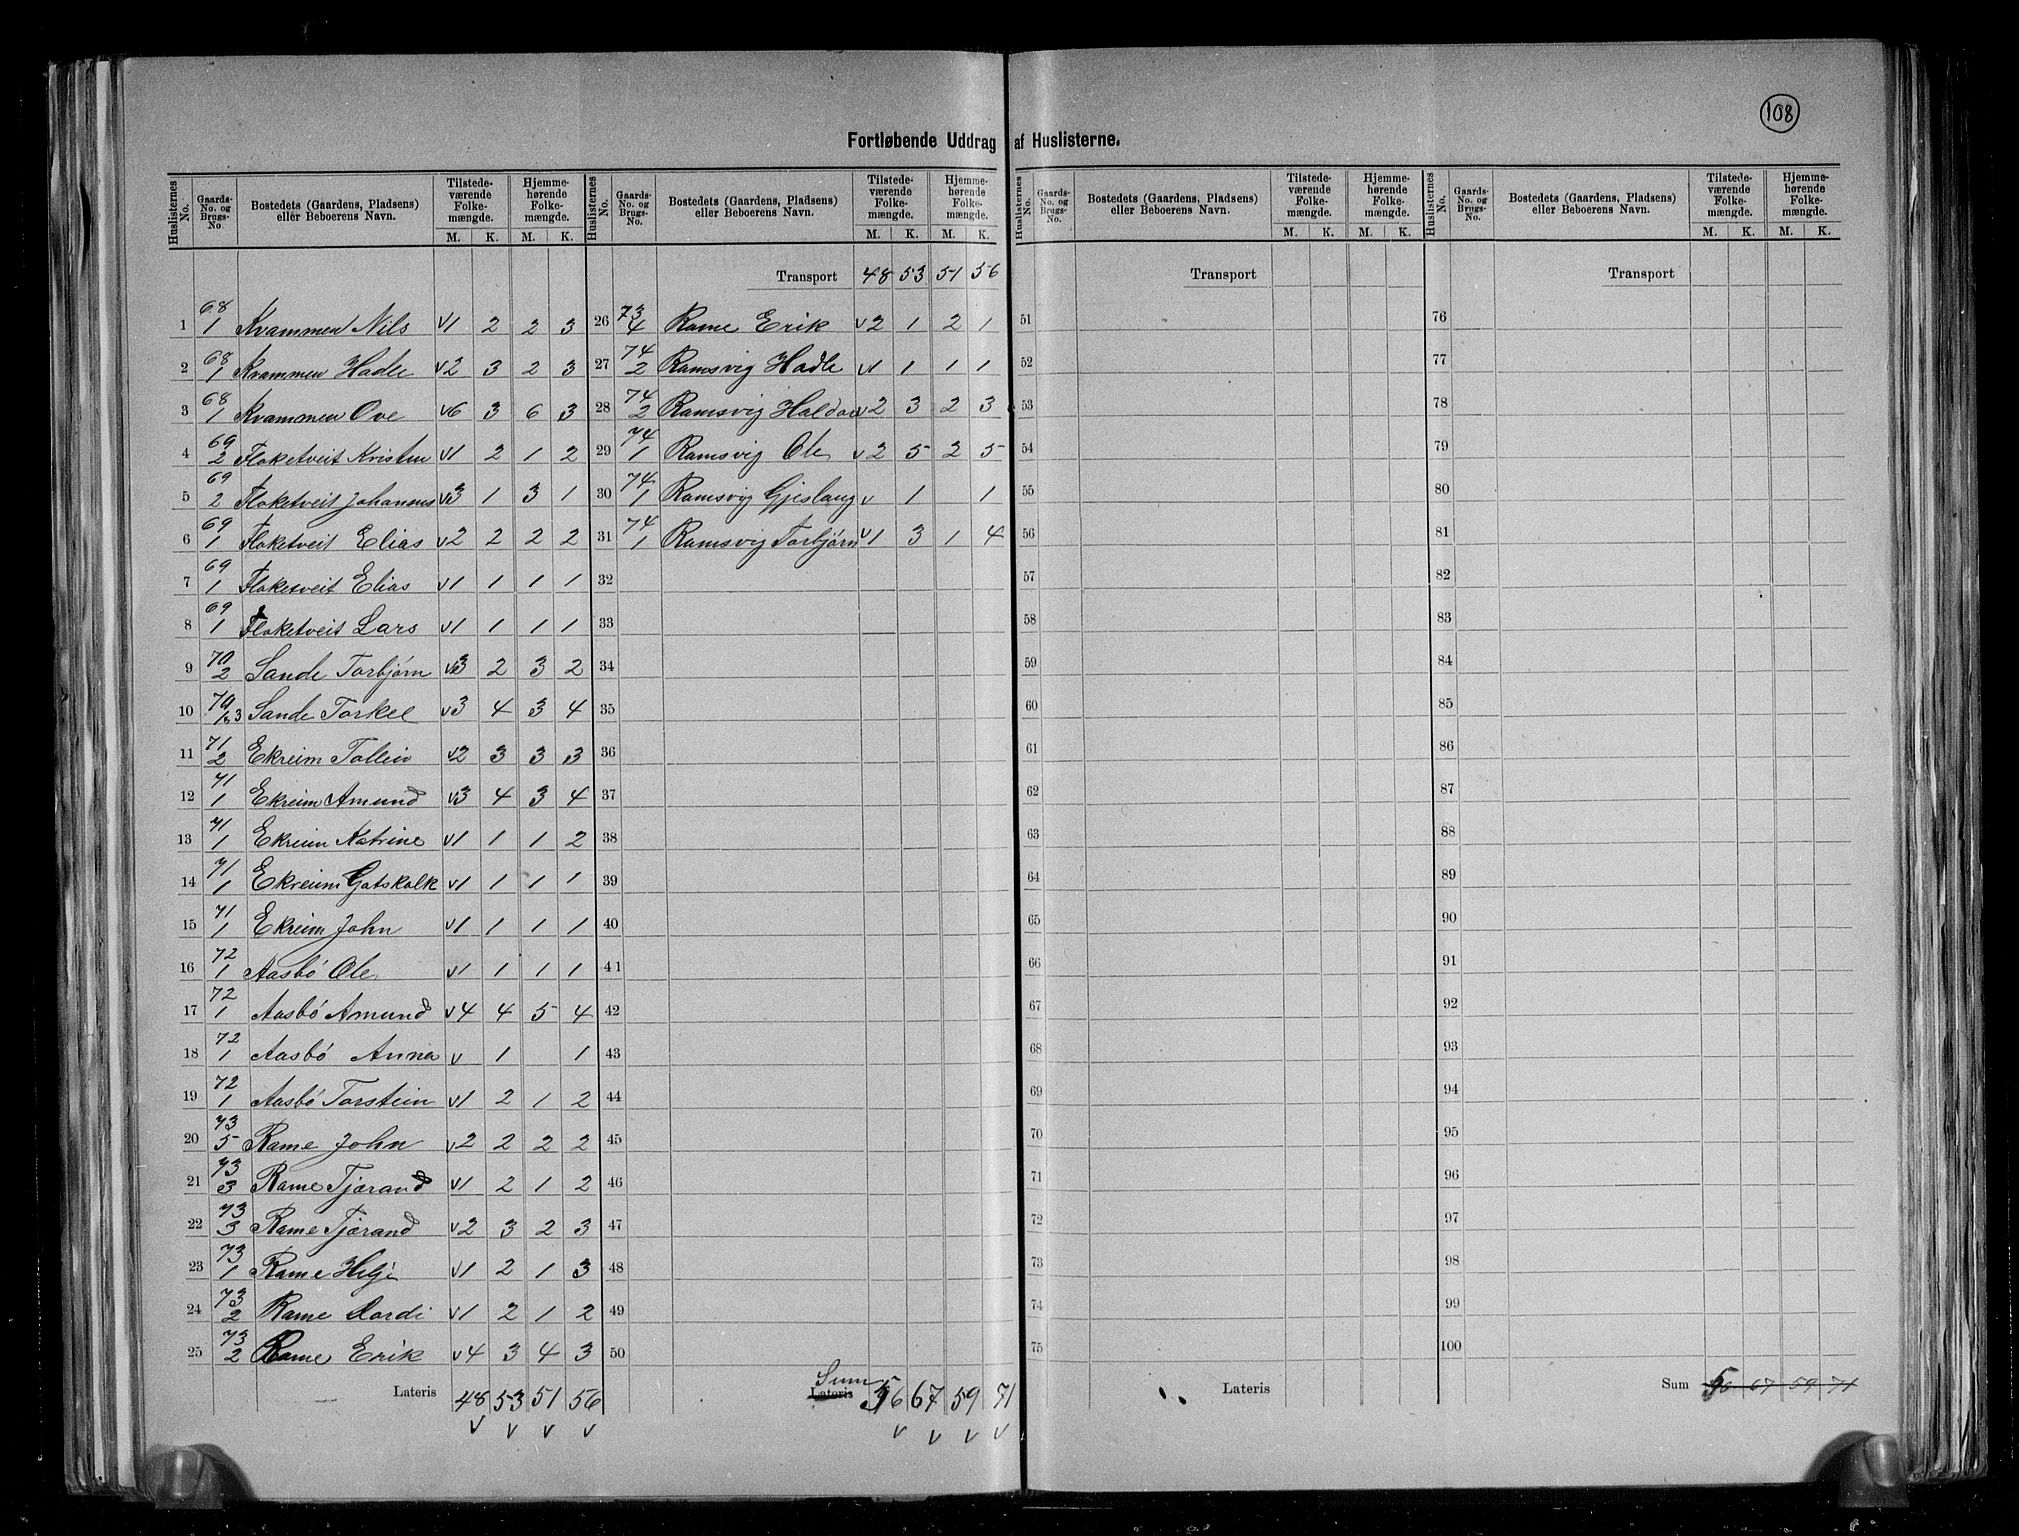 108
Fortløbende Uddrag af Huslisterne.
Huslisternes No. Gaards-No. og Brugs-No. Bostedets (Gaardens, Pladsens) eller Beboerens Navn. Tilstedeværende Folkemængde. M. K. Hjemmehørende Folkemængde. M. K.
1 68/1 Kvammen Nils v1 2 2 3
2 68/1 Kvammen Hadle v2 3 2 3
3 68/1 Kvammen Ove v6 3 6 3
4 69/2 Floketveit Kristen v1 2 1 2
5 69/2 Floketveit Johannes v3 1 3 1
6 69/1 Floketveit Elias v2 2 2 2
7 69/1 Floketveit Elias v1 1 1 1
8 69/1 Floketveit Lars v1 1 1 1
9 70/2 Sande Torbjørn v3 2 3 2
10 70/1,3 Sande Torkel v3 4 3 4
11 71/2 Ekreim Tollein v2 3 3 3
12 71/1 Ekreim Amund v3 4 3 4
13 71/1 Ekreim Katrine v1 1 1 2
14 71/1 Ekreim Gotskalk v1 1 1 1
15 71/1 Ekreim John v1 1 1 1
16 72/1 Aasbø Ole v1 1 1 1
17 72/1 Aasbø Amund v4 4 5 4
18 72/1 Aasbø Anna v 1 1
19 72/1 Aasbø Torstein v1 2 1 2
20 73/5 Rame John v2 2 2 2
21 73/3 Rame Tjærand v1 2 1 2
22 73/3 Rame Tjærand v2 3 2 3
23 73/1 Rame Helje v1 2 1 3
24 73/2 Rame Dordi v1 2 1 2
25 73/2 Rame Erik v4 3 4 3
Lateris 48 53 51 56
v v v v
Huslisternes No. Gaards-No. og Brugs-No. Bostedets (Gaardens, Pladsens) eller Beboerens Navn. Tilstedeværende Folkemængde. M. K. Hjemmehørende Folkemængde. M. K.
Transport 48 53 51 56
26 73/4 Rame Erik v2 1 2 1
27 74/2 Ramsvig Hadle v1 1 1 1
28 74/2 Ramsvig Haldor v2 3 2 3
29 74/1 Ramsvig Ole v2 5 2 5
30 74/1 Ramsvig Gjeslaug v 1 1
31 74/1 Ramsvig Torbjørn v1 3 1 4
32
33
34
35
36
37
38
39
40
41
42
43
44
45
46
47
48
49
50
Sum
Lateris 56 67 59 71
v v v v
Huslisternes No. Gaards-No. og Brugs-No. Bostedets (Gaardens, Pladsens) eller Beboerens Navn. Tilstedeværende Folkemængde. M. K. Hjemmehørende Folkemængde. M. K.
Transport
51
52
53
54
55
56
57
58
59
60
61
62
63
64
65
66
67
68
69
70
71
72
73
74
75
Lateris
Huslisternes No. Gaards-No. og Brugs-No. Bostedets (Gaardens, Pladsens) eller Beboerens Navn. Tilstedeværende Folkemængde. M. K. Hjemmehørende Folkemængde. M. K.
Transport
76
77
78
79
80
81
82
83
84
85
86
87
88
89
90
91
92
93
94
95
96
97
98
99
100
Sum 56 67 59 71